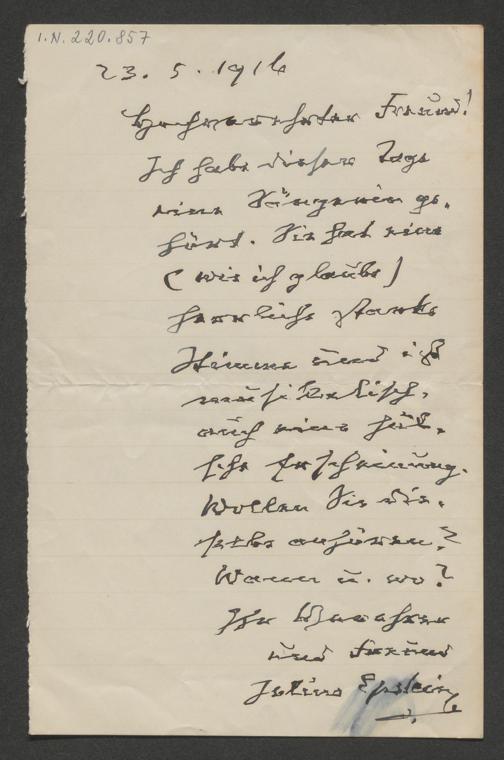 I.N. 220.857
23. 5. 1916
Hochverehrter Freund!
Ich habe dieser Tage
eine Sängerin ge-
hört. Sie hat eine
(wie ich glaube)
herrliche starke
Stimme und ist
musikalisch,
auch eine hüb-
sche Erscheinung.
Wollen Sie die-
selbe anhören?
Wann u. wo?
Ihr Verehrer
und Freund
Julius Epstein